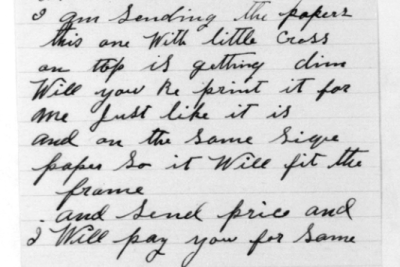 I am sending the papers
this one With little Cross
on top is getting dim
Will you Re print it for
me Just like it is
and on the same Sige
paper So it Will fit the
frame
. and Send price and
I Will pay you for Same